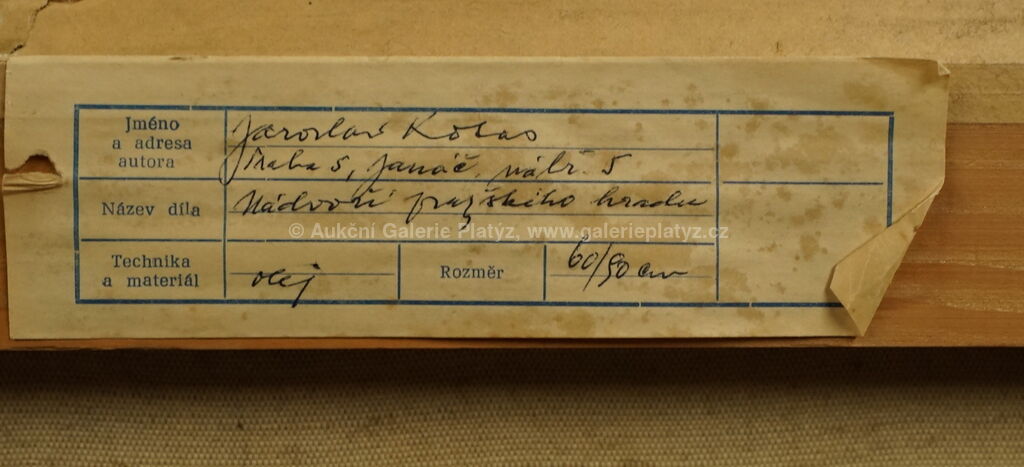 Jméno
a adresa
autora
Jaroslav Kolao
Praha 5, Janáč. nábř. 5
Název díla
Nádvoří pražského hradu
© Aukční Galerie Platýz, www.galerieplatyz.cz
Technika
a materiál
olej
Rozměr
60/90 cm